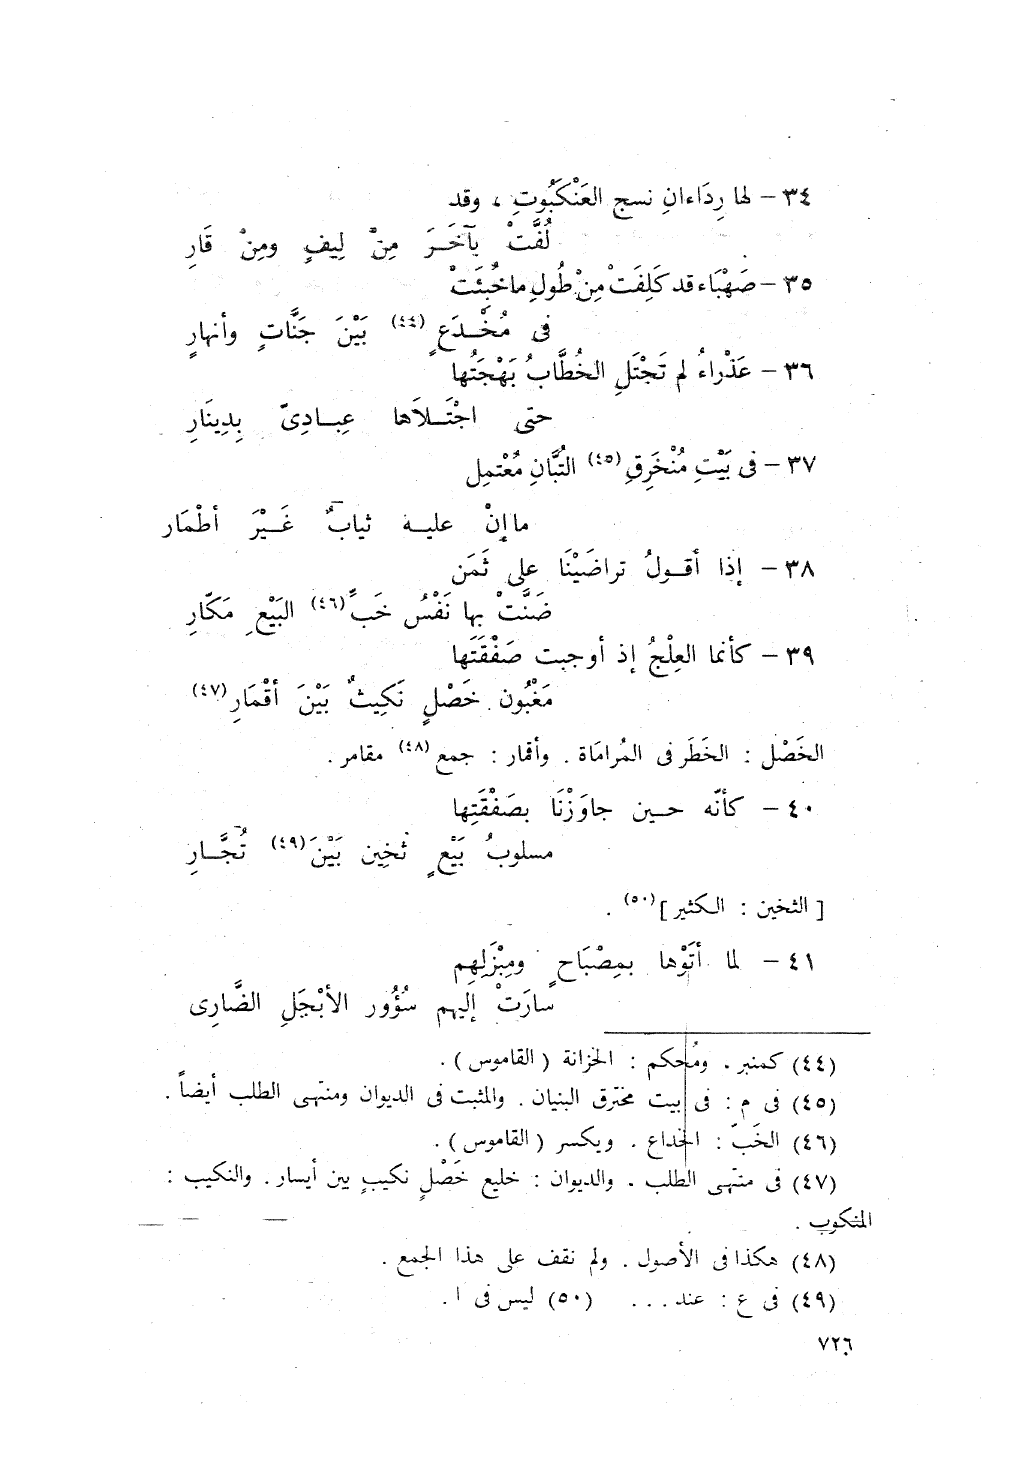 ٣٤ – لها رِدَاءانِ نسج العَنْكَبُوتِ ، وقد
لُفَّتْ بآخَرَ مِنْ لِيفٍ ومِنْ قَارِ
٣٥ – صَهْبَاء قد كَلِفَتْ مِنْ طُولِ ما خُبِئَتْ
فى مُخْدَعٍ (٤٤) بَيْنَ جَنَّاتٍ وأنهارِ
٣٦ – عَذْراءُ لم تَجْتَلِ الخُطَّابُ بَهْجَتُها
حتى اجْتَلاَها عِبادِىّ بِدِينَارِ
٣٧ – فى بَيْتِ مُنْخَرِقِ (٤٥) التُّبَّانِ مُعْتمِل
ما إنْ عليه ثيابٌ غَيْرَ أطْمَار
٣٨ – إذا أقولُ تراضَيْنَا على ثَمَن
ضَنَّتْ بها نَفْسُ خَبّ (٤٦) البَيْعِ مَكّارِ
٣٩ – كأنما العِلْجُ إذ أوجبت صَفْقَتَها
مَغْبُون خَصْلٍ نَكِيثٌ بَيْنَ أقْمَارِ (٤٧)
الخَصْل : الخَطَر فى المُرامَاة . وأقمار : جمع (٤٨) مقامر .
٤٠ – كأنّه حين جاوَزْنَا بصَفْقَتِها
مسلوبُ بَيْعٍ ثخِين بَيْنَ (٤٩) تُجَّارِ
[ الثخين : الكثير ] (٥٠) .
٤١ – لما أتَوْها بمِصْبَاحٍ ومِبْزَلِهِم
سارَتْ إليهم سُؤُور الأبْجَلِ الضَّارِى
(٤٤) كمنبر . ومُحكم : الخزانة ( القاموس ) .
(٤٥) فى م : فى بيت مخترق البنيان . والمثبت فى الديوان ومنتهى الطلب أيضاً .
(٤٦) الخَبّ : الخداع . ويكسر ( القاموس ) .
(٤٧) فى منتهى الطلب . والديوان : خليع خَصْلٍ نكيبٍ بين أيسار . والنكيب :
المنكوب .
(٤٨) هكذا فى الأصول . ولم نقف على هذا الجمع .
(٤٩) فى ع : عند . . . (٥٠) ليس فى ا .
٧٢٦